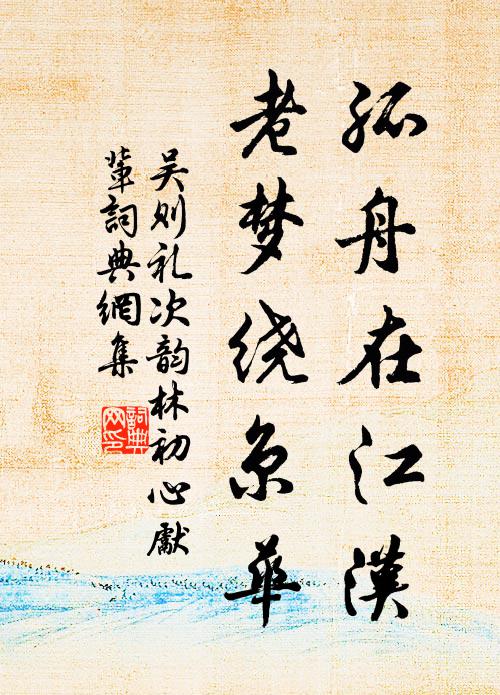 孤舟在江漢
老梦绕京華
吴则礼次韵林初心獻
輩詞典網集
詞典
网印